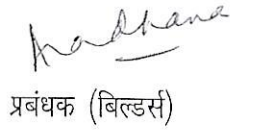 Aradhana
प्रबंधक (बिल्डर्स)